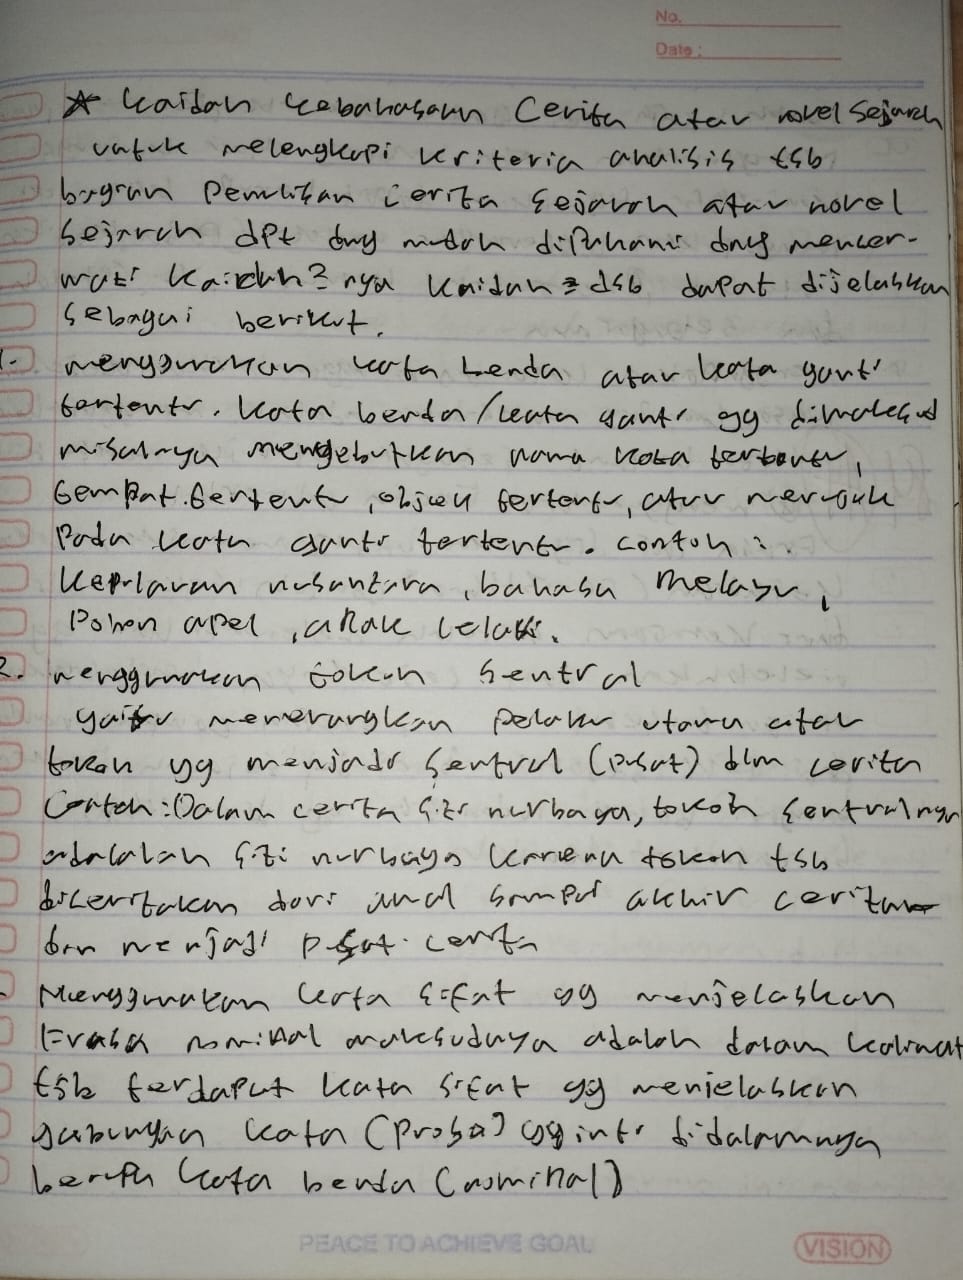 No.
Date :
* Kaidah kebahasaan Cerita atau novel Sejarah
untuk melengkapi kriteria analisis tsb
bagian Penulisan cerita sejarah atau novel
Sejarah dpt dng mudah dipahami dng mencer-
mati kaidah2 nya kaidah2 dsb dapat dijelaskan
Sebagai berikut.
1. menggunakan kata benda atau kata ganti
tertentu. kata benda/kata ganti yg dimaksud
misalnya mengebutkan nama kota tertentu,
tempat tertentu, objek tertentu, atau merujuk
Pada kata ganti tertentu. contoh :
kepulauan nusantara, bahasa melayu,
Pohon apel, anak lelaki.
2. menggunakan tokoh sentral
yaitu menerangkan pelaku utama atau
tokoh yg menjadi sentral (pusat) dlm cerita
Contoh : Dalam cerita Siti nurbaya, tokoh sentralnya
adalalah Siti nurbaya karena tokoh tsb
diceritakan dari awal sampai akhir cerita
dan menjadi pusat cerita
Menggunakan kata sifat yg menjelaskan
Frasa nominal maksudnya adalah dalam kalimat
tsb terdapat kata sifat yg menjelaskan
gabungan kata (frasa) yg inti didalamnya
berupa kata benda (nominal)
PEACE TO ACHIEVE GOAL
VISION